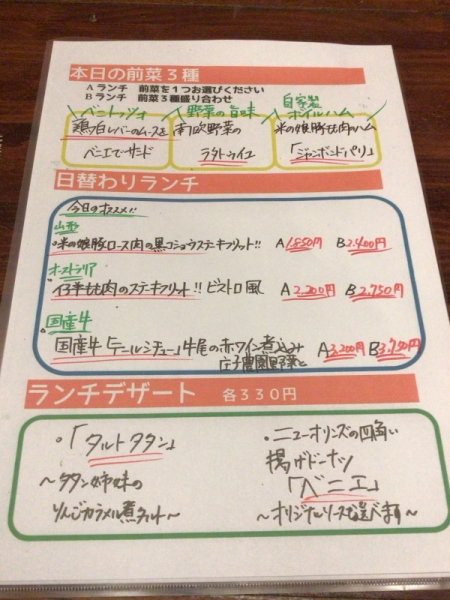 本日の前菜３種
Ａランチ 前菜を１つお選びください
Ｂランチ 前菜３種盛り合わせ
野菜の旨味
自家製
ボイルハム
鶏白レバーのムースを
ベニエでサンド
南欧野菜の
ラタトゥイユ
米の娘豚もも肉のハム
「ジャンボンドパリ」
日替わりランチ
今日のオススメ!!
山形
・米の娘豚ロース肉の黒コショウステーキフリット!! A 1,850円 B 2,400円
オーストラリア
・仔羊もも肉のステーキフリット!! ビストロ風 A 2,200円 B 2,750円
・国産牛
国産牛「テールシチュー」牛尾の赤ワイン煮込み A 3,200円 B 3,750円
庄子農園野菜と
ランチデザート 各３３０円
・「タルトタタン」
〜タタン姉妹の
りんごカラメル煮タルト〜
・ニューオリンズの四角い
揚げドーナツ
「ベニエ」
〜オリジナルソースも選べます〜